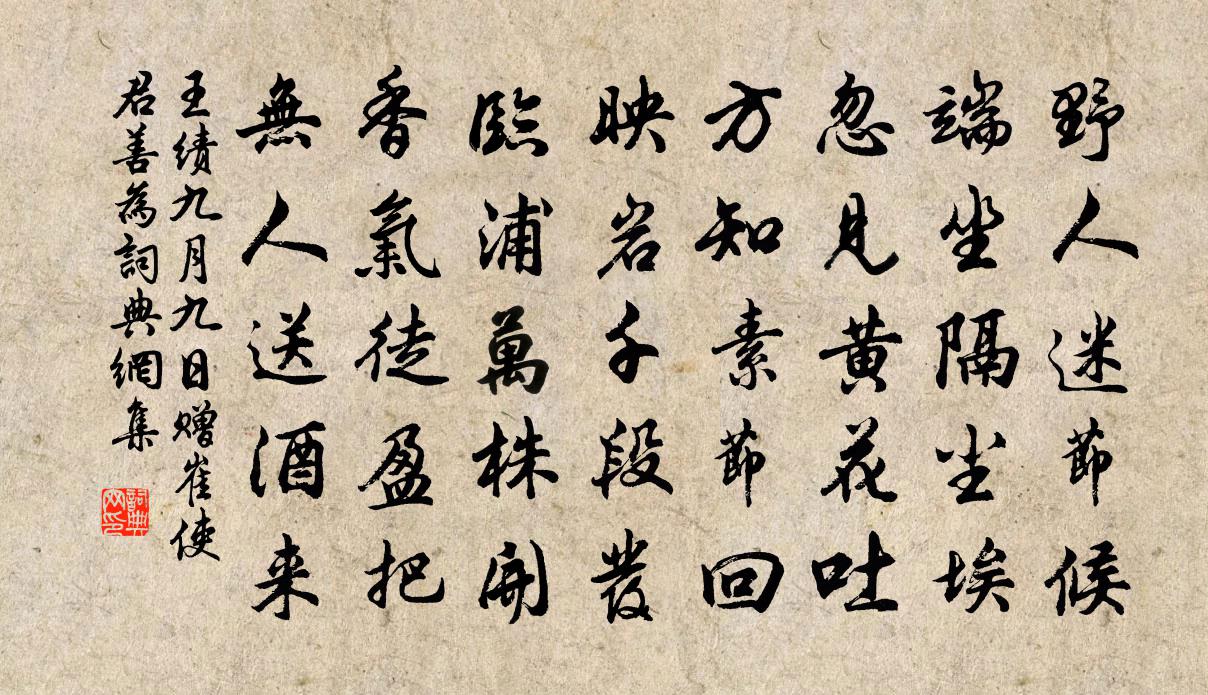 野人迷節候
端坐隔尘埃
忽見黄花吐
方知素節回
映岩千段發
臨浦萬株開
香氣徒盈把
無人送酒来
王績九月九日赠崔使
君善為詞典網集
詞典
网印